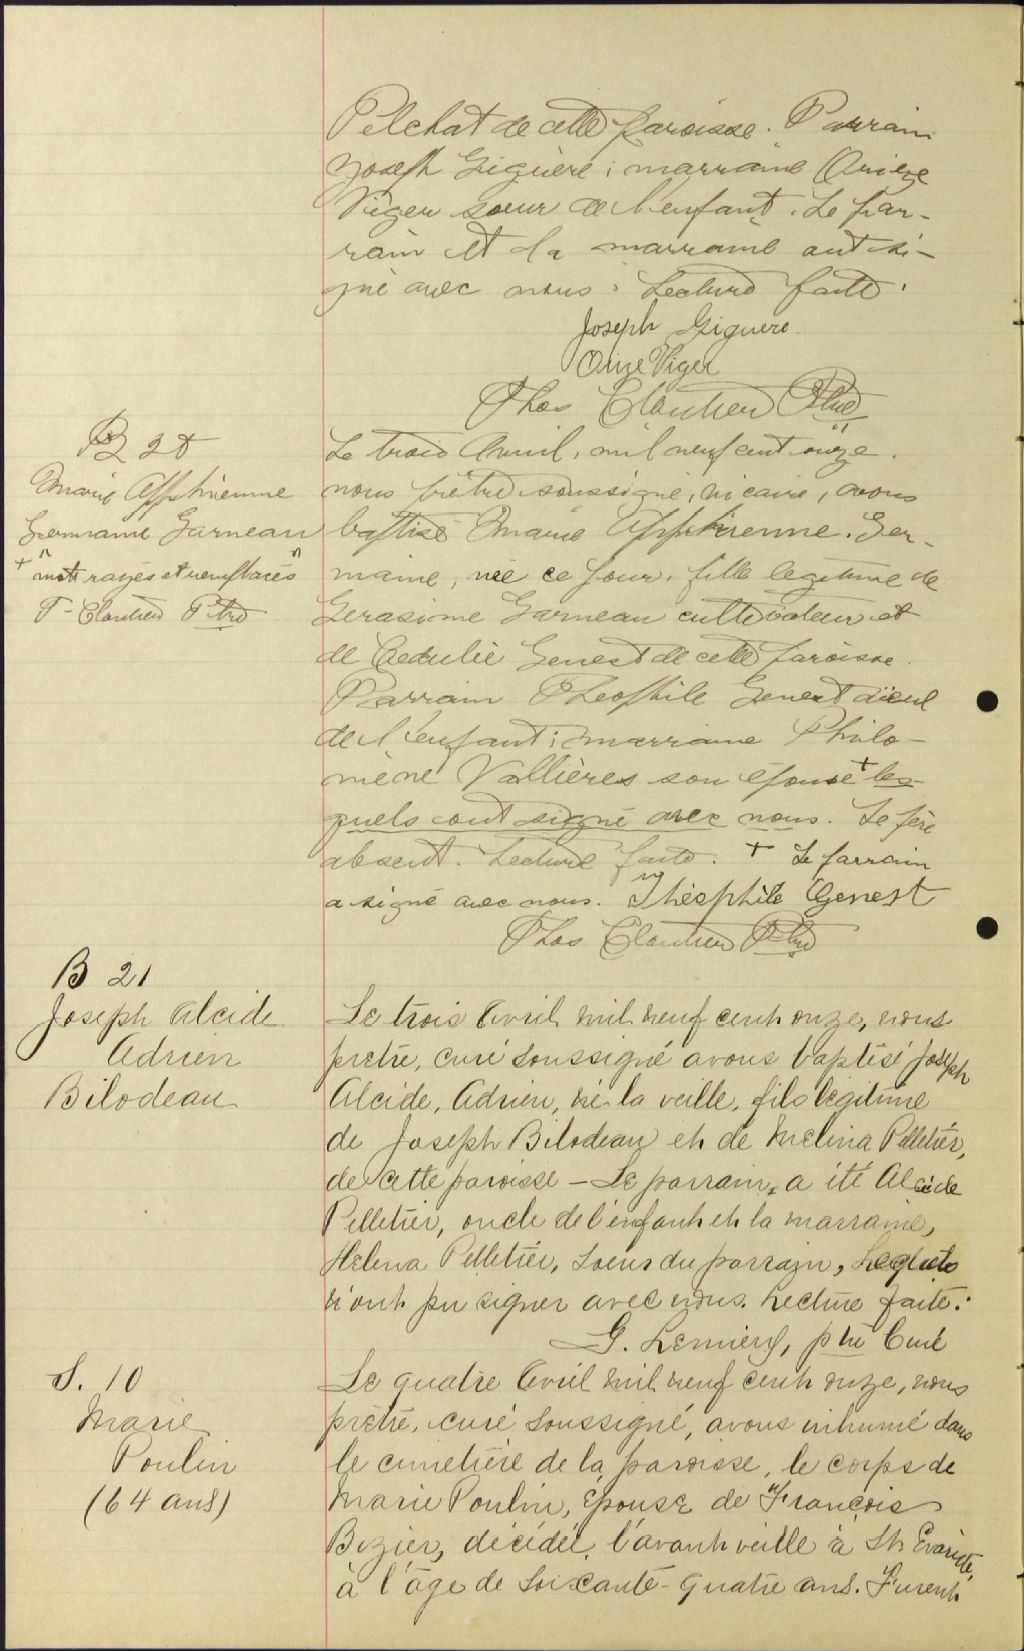 Pelchat de cette paroisse. Parrain
Joseph Giguère ; marraine Orize
Viger soeur de l'enfant. Le par-
rain et la marraine ont si-
gné avec nous. Lecture faite.
Joseph Giguere
Orize Viger
Thos Cloutier Ptre
B 20
Marie Apphienne
Germaine Garneau
+ "mots rayés et remplacés"
T- Cloutier Ptre
Le trois Avril, mil neuf cent onze.
nous prêtre soussigné, vicaire, avons
baptisé Marie Apphienne. Ger-
maine, née ce jour, fille légitime de
Gerasime Garneau cultivateur et
de Cedulie Genest de cette paroisse.
Parrain Theophile Genest aïeul
de l'enfant ; marraine Philo-
mène Vallières son épouse + les-
quels ont signé avec nous. Le père
absent. Lecture faite. + Le parrain
a signé avec nous. Théophile Genest
Thos Cloutier Ptre
B 21
Joseph Alcide
Adrien
Bilodeau
Le trois Avril mil neuf cent onze, nous
prêtre, curé soussigné avons baptisé Joseph
Alcide, Adrien, né la veille, fils légitime
de Joseph Bilodeau et de Mélina Pelletier,
de cette paroisse — Le parrain, a été Alcide
Pelletier, oncle de l'enfant et la marraine,
Helena Pelletier, soeur du parrain, lesquels
n'ont pu signer avec nous. Lecture faite.
G. Lemiery, ptre Curé
S. 10
Marie
Poulin
(64 ans)
Le quatre Avril mil neuf cent onze, nous
prêtre, curé soussigné, avons inhumé dans
le cimetière de la paroisse, le corps de
Marie Poulin, épouse de François
Bizier, décédée, l'avant veille à St. Evariste,
à l'âge de soixante-quatre ans. Furent